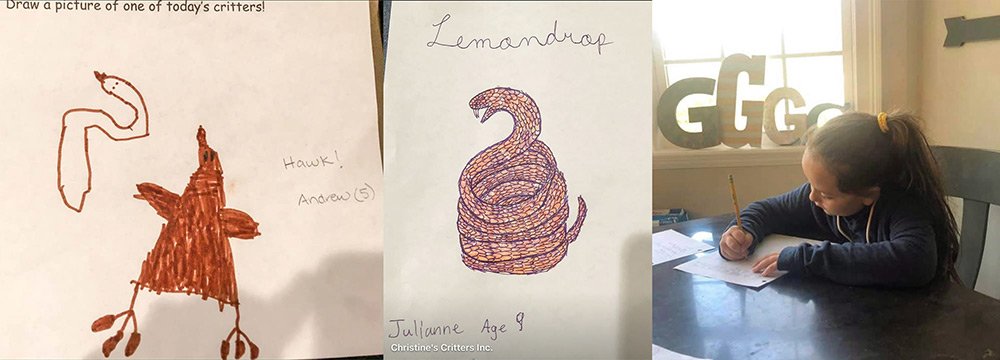 Draw a picture of one of today's critters!
Hawk!
Andrew (5)
Lemondrop
Julianne Age 9
Christine's Critters Inc.
G G G G